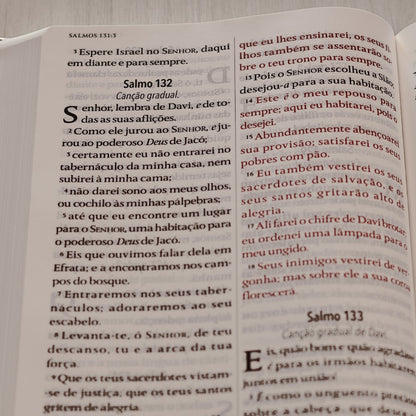 SALMOS 131:3
3 Espere Israel no SENHOR, daqui
em diante e para sempre.
Salmo 132
Canção gradual.
Senhor, lembra de Davi, e de to-
das as suas aflições.
2 Como ele jurou ao SENHOR, e ju-
rou ao poderoso Deus de Jacó:
3 certamente eu não entrarei no
tabernáculo da minha casa, nem
subirei à minha cama;
4 não darei sono aos meus olhos,
ou cochilo às minhas pálpebras;
5 até que eu encontre um lugar
para o SENHOR, uma habitação para
o poderoso Deus de Jacó.
6 Eis que ouvimos falar dela em
Efrata; e a encontramos nos cam-
pos do bosque.
7 Entraremos nos seus taber-
náculos; adoraremos ao seu
escabelo.
8 Levanta-te, ó SENHOR, de teu
descanso, tu e a arca da tua
força.
9 Que os teus sacerdotes vistam-
se de justiça, que os teus santos
gritem de alegria.
que eu lhes ensinarei, os seus fi-
lhos também se assentarão so-
bre o teu trono para sempre.
13 Pois o SENHOR escolheu a Sião;
desejou-a para a sua habitação.
14 Este é o meu repouso para
sempre; aqui eu habitarei, pois o
desejei.
15 Abundantemente abençoarei
sua provisão; satisfarei os seus
pobres com pão.
16 Eu também vestirei os seus
sacerdotes de salvação, e os
seus santos gritarão alto de
alegria.
17 Ali farei o chifre de Davi brotar;
eu ordenei uma lâmpada para o
meu ungido.
18 Seus inimigos vestirei de ver-
gonha; mas sobre ele a sua coroa
florescerá.
Salmo 133
Canção gradual de Davi.
Eis, quão bom e quão agradável
é para os irmãos habitarem
juntos em união!
2 É como o unguento precioso